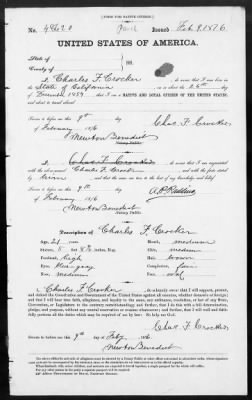 [FORM FOR NATIVE CITIZEN.]
No. Issued Feb 9. 1876
UNITED STATES OF AMERICA.
State of
County of
ss:
I, Charles F. Crocker, do swear that I was born in
the State of California on the 26th day
of December 1854; that I am a NATIVE AND LOYAL CITIZEN OF THE UNITED STATES,
and about to travel abroad.
Sworn to before me, this 9th day
of February 1876
Chas F. Crocker
Newton Benedict
Notary Public.
I, Chas F. Crocker, do swear that I am acquainted
with the above-named Charles F. Crocker and with the facts
stated by him and that the same are true to the best of my knowledge and belief.
Sworn to before me, this 9th day
of February 1876
Newton Benedict
Notary Public.
Description of Charles F. Crocker
Age, 21 years.
Mouth, medium
Stature, 5 feet inches, Eng.
Chin, medium
Forehead, high
Hair, brown
Eyes, blue gray
Complexion, fair
Nose, medium
Face, oval
I, Charles F. Crocker, do solemnly swear that I will support, protect,
and defend the Constitution and Government of the United States against all enemies, whether domestic or foreign;
and that I will bear true faith, allegiance, and loyalty to the same, any ordinance, resolution, or law of any State,
Convention, or Legislature to the contrary notwithstanding; and further, that I do this with a full determination,
pledge, and purpose, without any mental reservation or evasion whatsoever; and further, that I will well and faith-
fully perform all the duties which may be required of me by law: So help me God.
Chas. F. Crocker
Sworn to before me, this 9th day of Feby 1876.
Newton Benedict